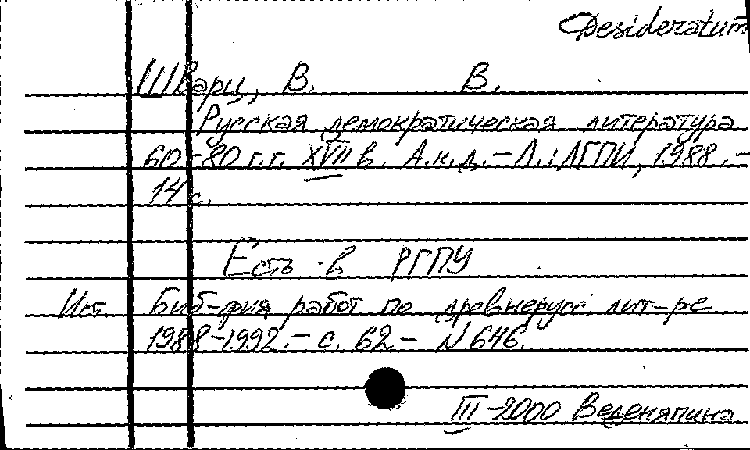 Desideratum
Шварц, В. В.
Русская демократическая литература
60-80 г.г. XVII в. А.к.д. - Л.: ЛГПИ, 1988. -
14 с.
Есть в РГПУ
Ист. Биб-фия работ по древнерусс. лит-ре
1988-1992. - с. 62 - N 646.
III-2000 Веденяпина